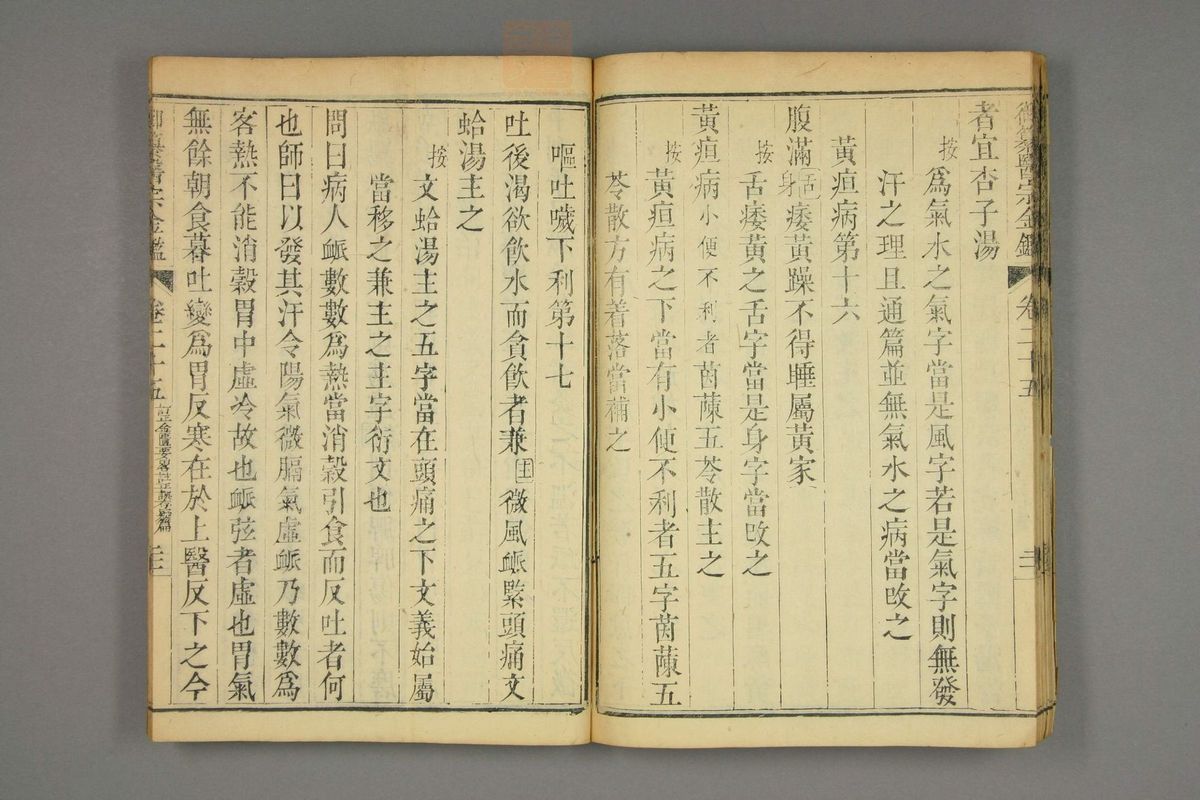 御纂醫宗金鑑 卷二十五
者宜杏子湯
按爲氣水之氣字當是風字若是氣字則無發
汗之理且通篇並無氣水之病當攺之
黃疸病第十六
腹滿舌身痿黃躁不得睡屬黃家
按舌痿黃之舌字當是身字當攺之
黃疸病小便不利者茵蔯五苓散主之
按黃疸病之下當有小便不利者五字茵蔯五
苓散方有着落當補之
嘔吐噦下利第十七
吐後渴欲飮水而貪飮者兼主微風脈緊頭痛文
蛤湯主之
按文蛤湯主之五字當在頭痛之下文義始屬
當移之兼主之主字衍文也
問曰病人脈數數爲熱當消穀引食而反吐者何
也師曰以發其汗令陽氣微膈氣虛脈乃數數爲
客熱不能消穀胃中虛冷故也脈弦者虛也胃氣
無餘朝食暮吐變爲胃反寒在於上醫反下之今
御纂醫宗金鑑 卷二十五 訂正金匱要略註正誤存疑篇 三